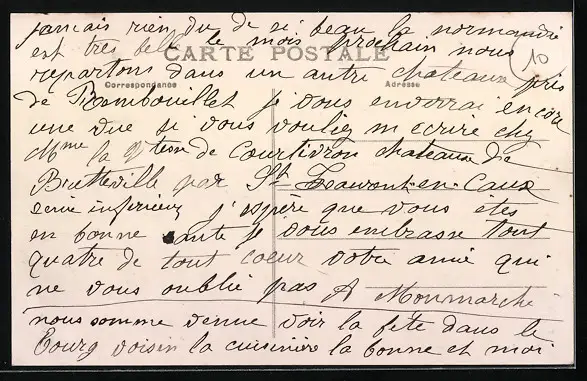 jamais rien du de si beau la normandie
est très belle le mois prochain nous
CARTE POSTALE
10
repartons dans un autre chateaux près
Correspondance
Adresse
de Rambouillet je vous enverrai encore
une vue si vous vouliez m ecrire chez
Mme la Vtesse de Courtivron chateaux de
Bretteville par St Laurent-en-Caux
Seine inferieur j'espère que vous êtes
en bonne sante je vous embrasse tout
quatre de tout coeur votre amie qui
ne vous oublie pas A Monmarché
nous somme venue voir la fête dans le
bourg voisin la cuisinière la bonne et moi